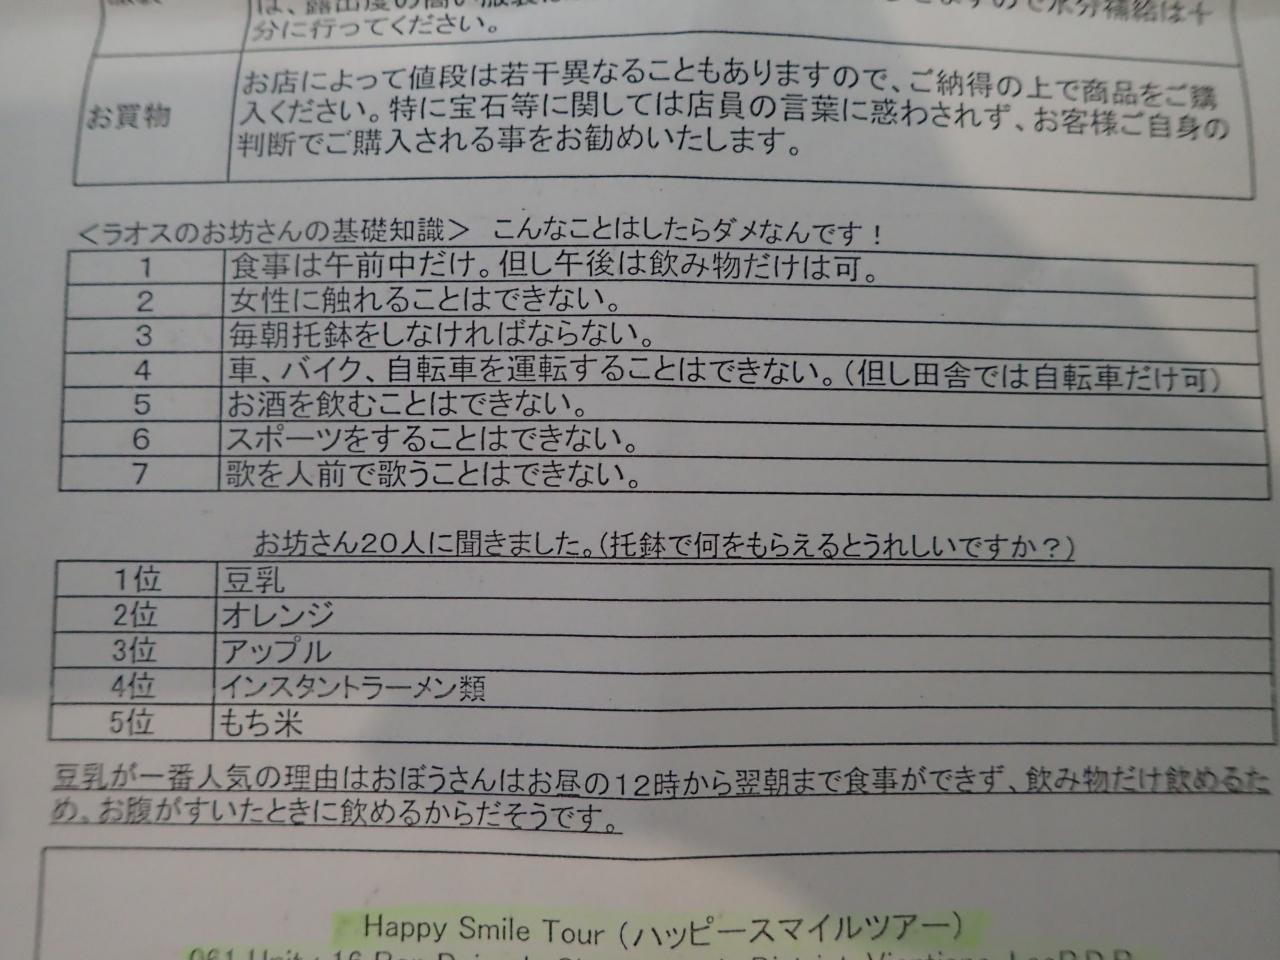 は、露出度の高い服装は
ますので水分補給は十
分に行ってください。
お買物
お店によって値段は若干異なることもありますので、ご納得の上で商品をご購
入ください。特に宝石等に関しては店員の言葉に惑わされず、お客様ご自身の
判断でご購入される事をお勧めいたします。
＜ラオスのお坊さんの基礎知識＞ こんなことはしたらダメなんです！
1 食事は午前中だけ。但し午後は飲み物だけは可。
2 女性に触れることはできない。
3 毎朝托鉢をしなければならない。
4 車、バイク、自転車を運転することはできない。（但し田舎では自転車だけ可）
5 お酒を飲むことはできない。
6 スポーツをすることはできない。
7 歌を人前で歌うことはできない。
お坊さん20人に聞きました。（托鉢で何をもらえるとうれしいですか？）
1位 豆乳
2位 オレンジ
3位 アップル
4位 インスタントラーメン類
5位 もち米
豆乳が一番人気の理由はおぼうさんはお昼の12時から翌朝まで食事ができず、飲み物だけ飲めるた
め。お腹がすいたときに飲めるからだそうです。
Happy Smile Tour （ハッピースマイルツアー）
061 Unit : 16 Ban